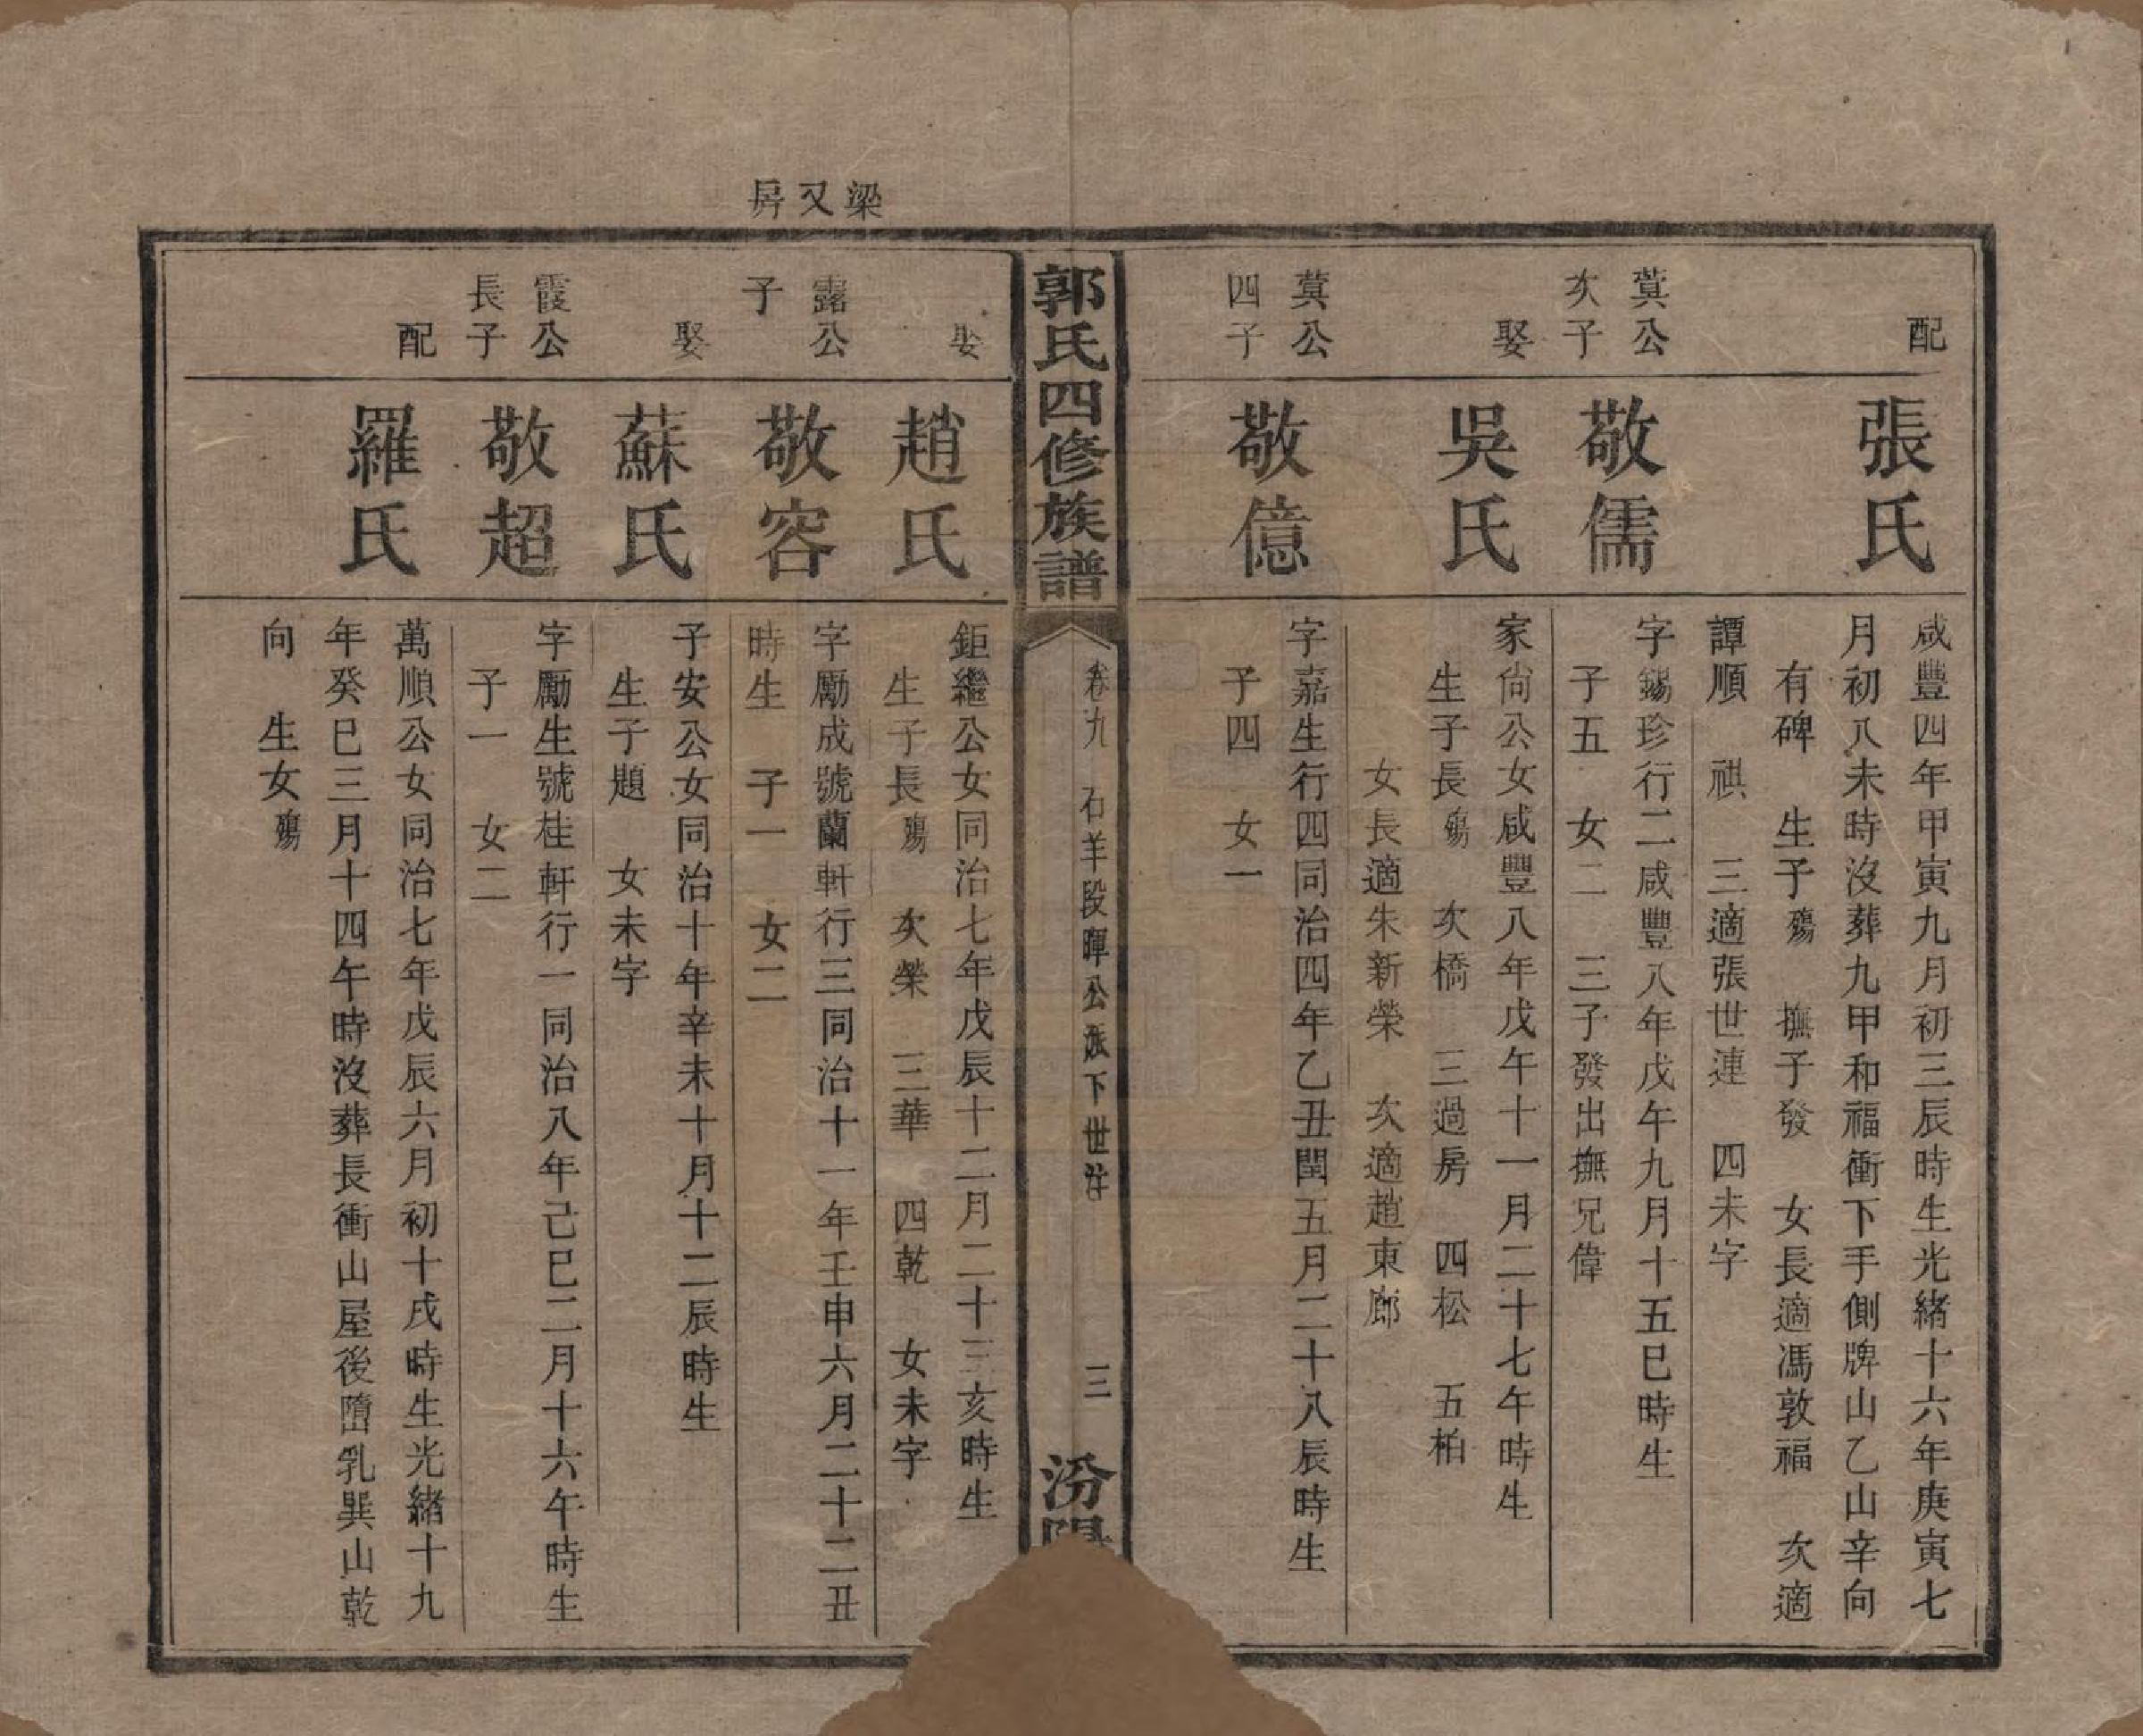 配
張氏
咸豐四年甲寅九月初三辰時生光緒十六年庚寅七
月初八未時沒葬九甲和福衝下手側牌山乙山辛向
有碑 生子殤 撫子發 女長適馮敦福 次適
譚順祺 三適張世連 四未字
蓂公
次子
敬儒
字錫珍行二咸豐八年戊午九月十五巳時生
子五 女二 三子發出撫兄偉
娶
吳氏
家尙公女咸豐八年戊午十一月二十七午時生
生子長殤 次橋 三過房 四松 五柏
女長適朱新榮 次適趙東廊
蓂公
四子
敬億
字嘉生行四同治四年乙丑閏五月二十八辰時生
子四 女一
郭氏四修族譜
卷九 石羊段暉公派下世 三
汾陽
梁又房
娶
趙氏
鉅繼公女同治七年戊辰十二月二十三亥時生
生子長殤 次榮 三華 四乾 女未字
露公
子
敬容
字勵成號蘭軒行三同治十一年壬申六月二十二丑
時生 子一 女二
娶
蘇氏
子安公女同治十年辛未十月十二辰時生
生子題 女未字
霞公
長子
敬超
字勵生號桂軒行一同治八年己巳二月十六午時生
子一 女二
配
羅氏
萬順公女同治七年戊辰六月初十戌時生光緒十九
年癸巳三月十四午時沒葬長衝山屋後墮乳巽山乾
向 生女殤